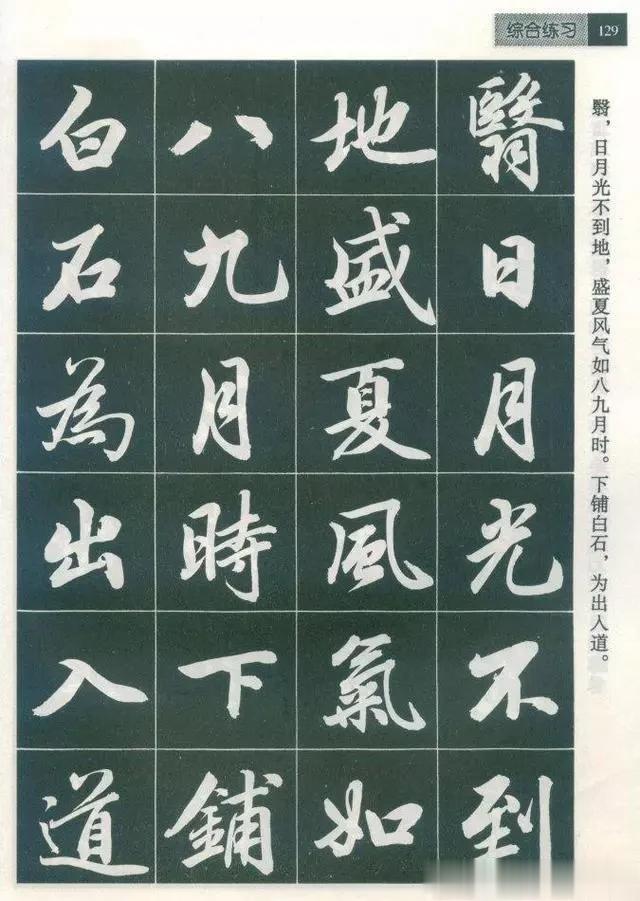 综合练习 129
翳，日月光不到地，盛夏风气如八九月时。下铺白石，为出入道。
翳日月光不到
地盛夏風氣如
八九月時下鋪
白石為出入道